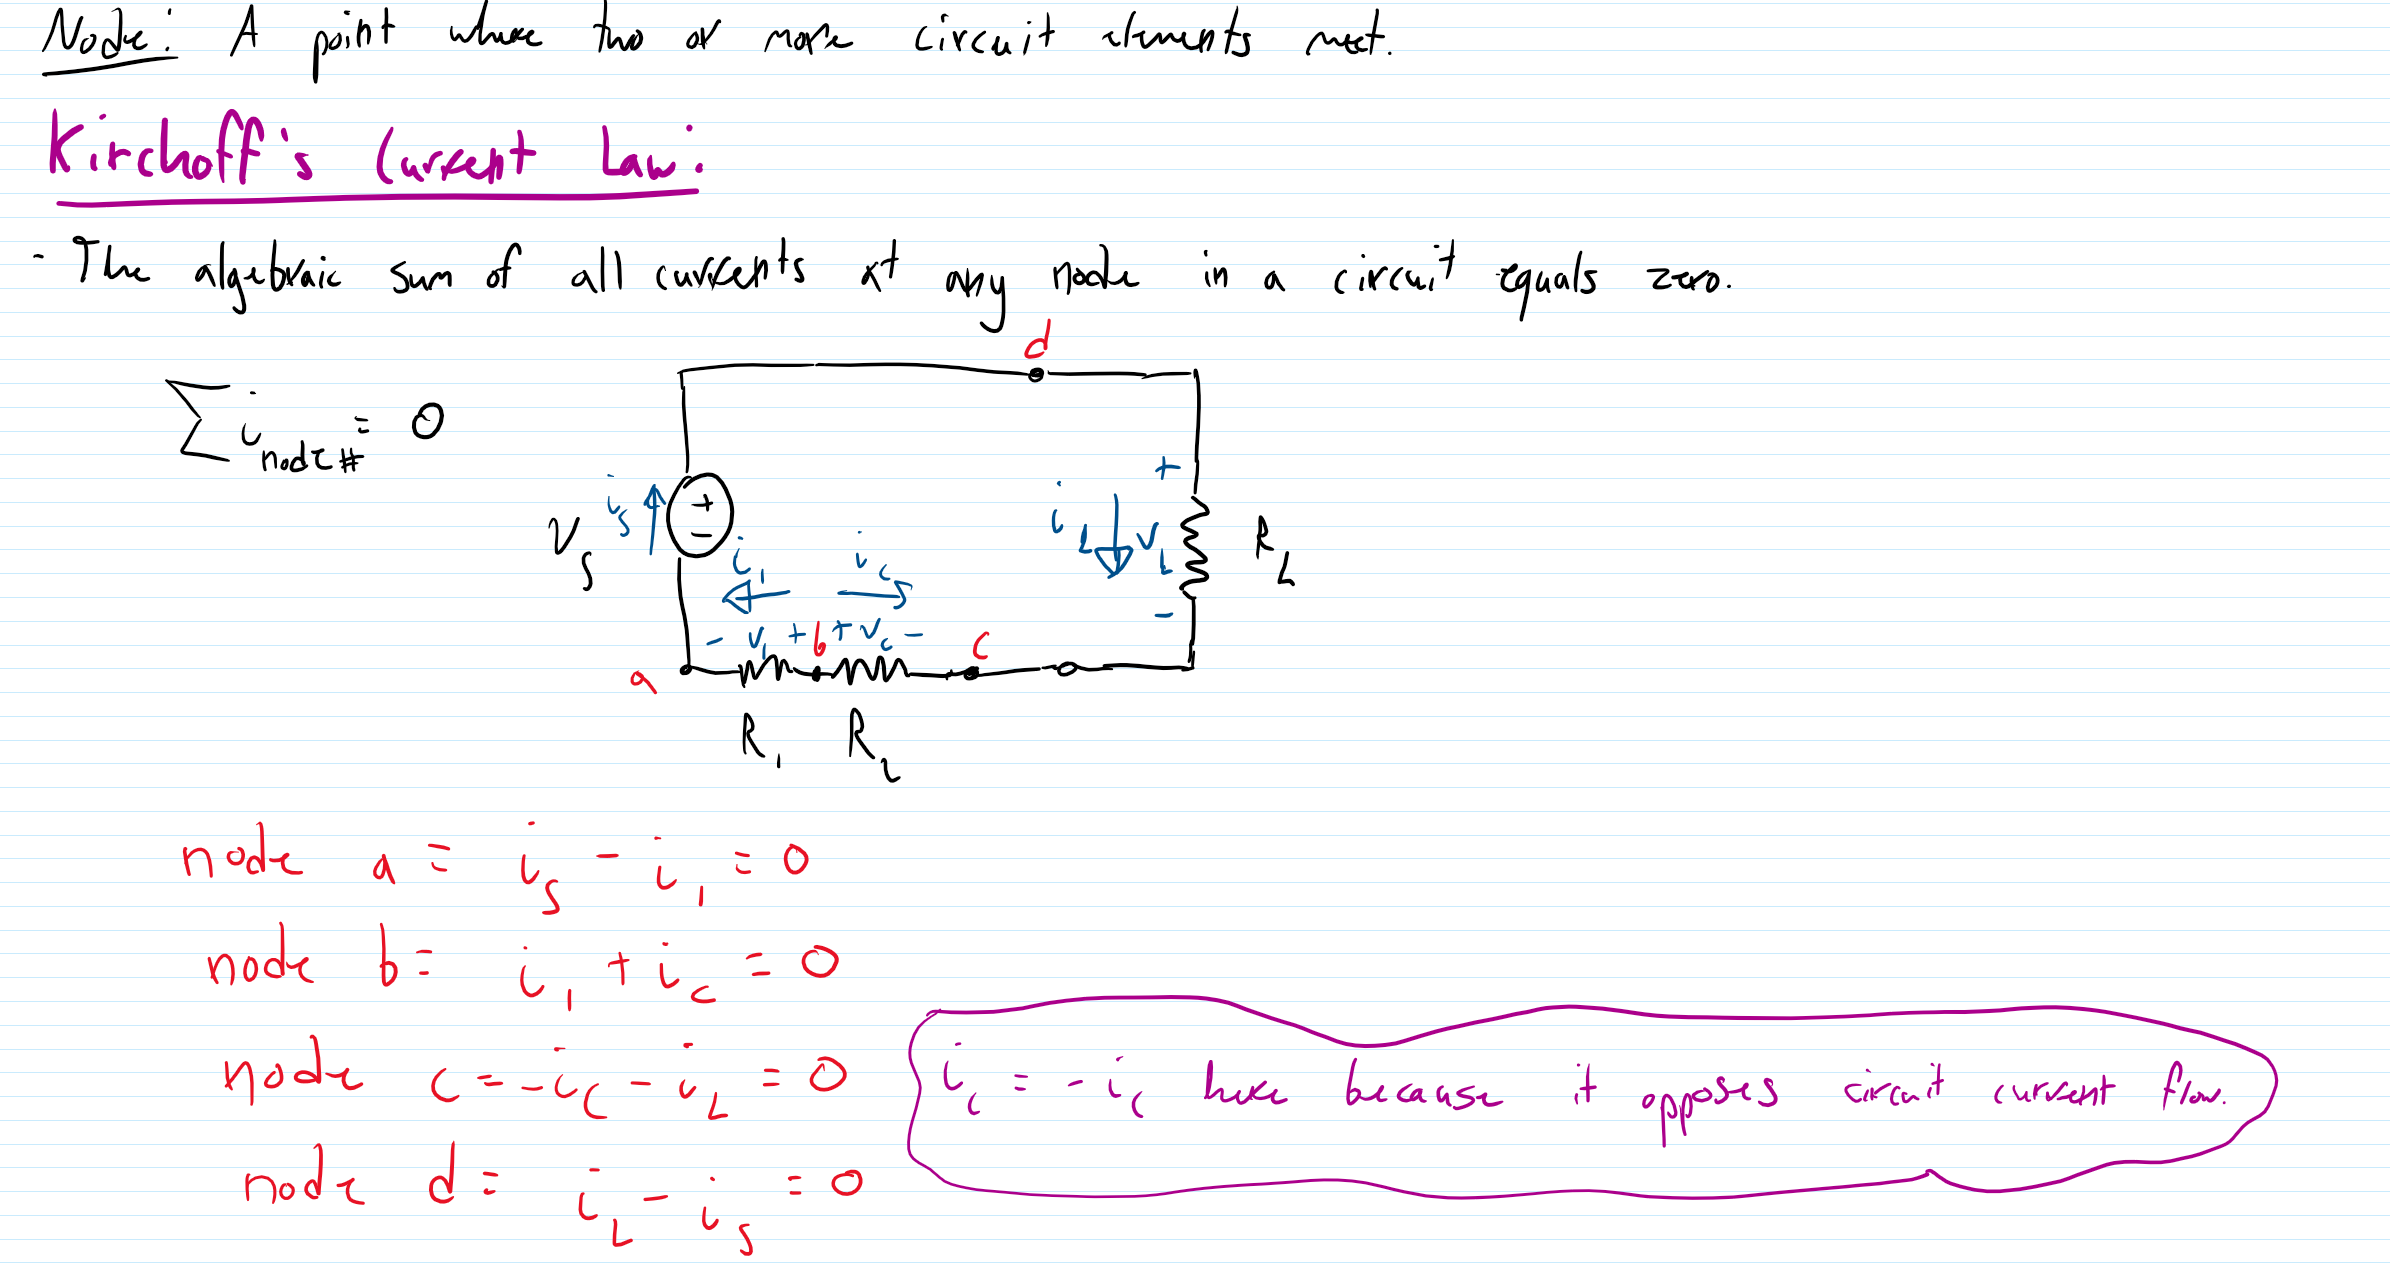 Node: A point where two or more circuit elements meet.
Kirchoff's Current Law:
- The algebraic sum of all currents at any node in a circuit equals zero.
d
∑ i_node# = 0
+
i_s + i_L v_L R_L
V_s −
i_1 i_c
−
− v_1 + b + v_c − c
a
R_1 R_2
node a = i_s − i_1 = 0
node b = i_1 + i_c = 0
node c = −i_c − i_L = 0
i_c = −i_c here because it opposes circuit current flow.
node d = i_L − i_s = 0